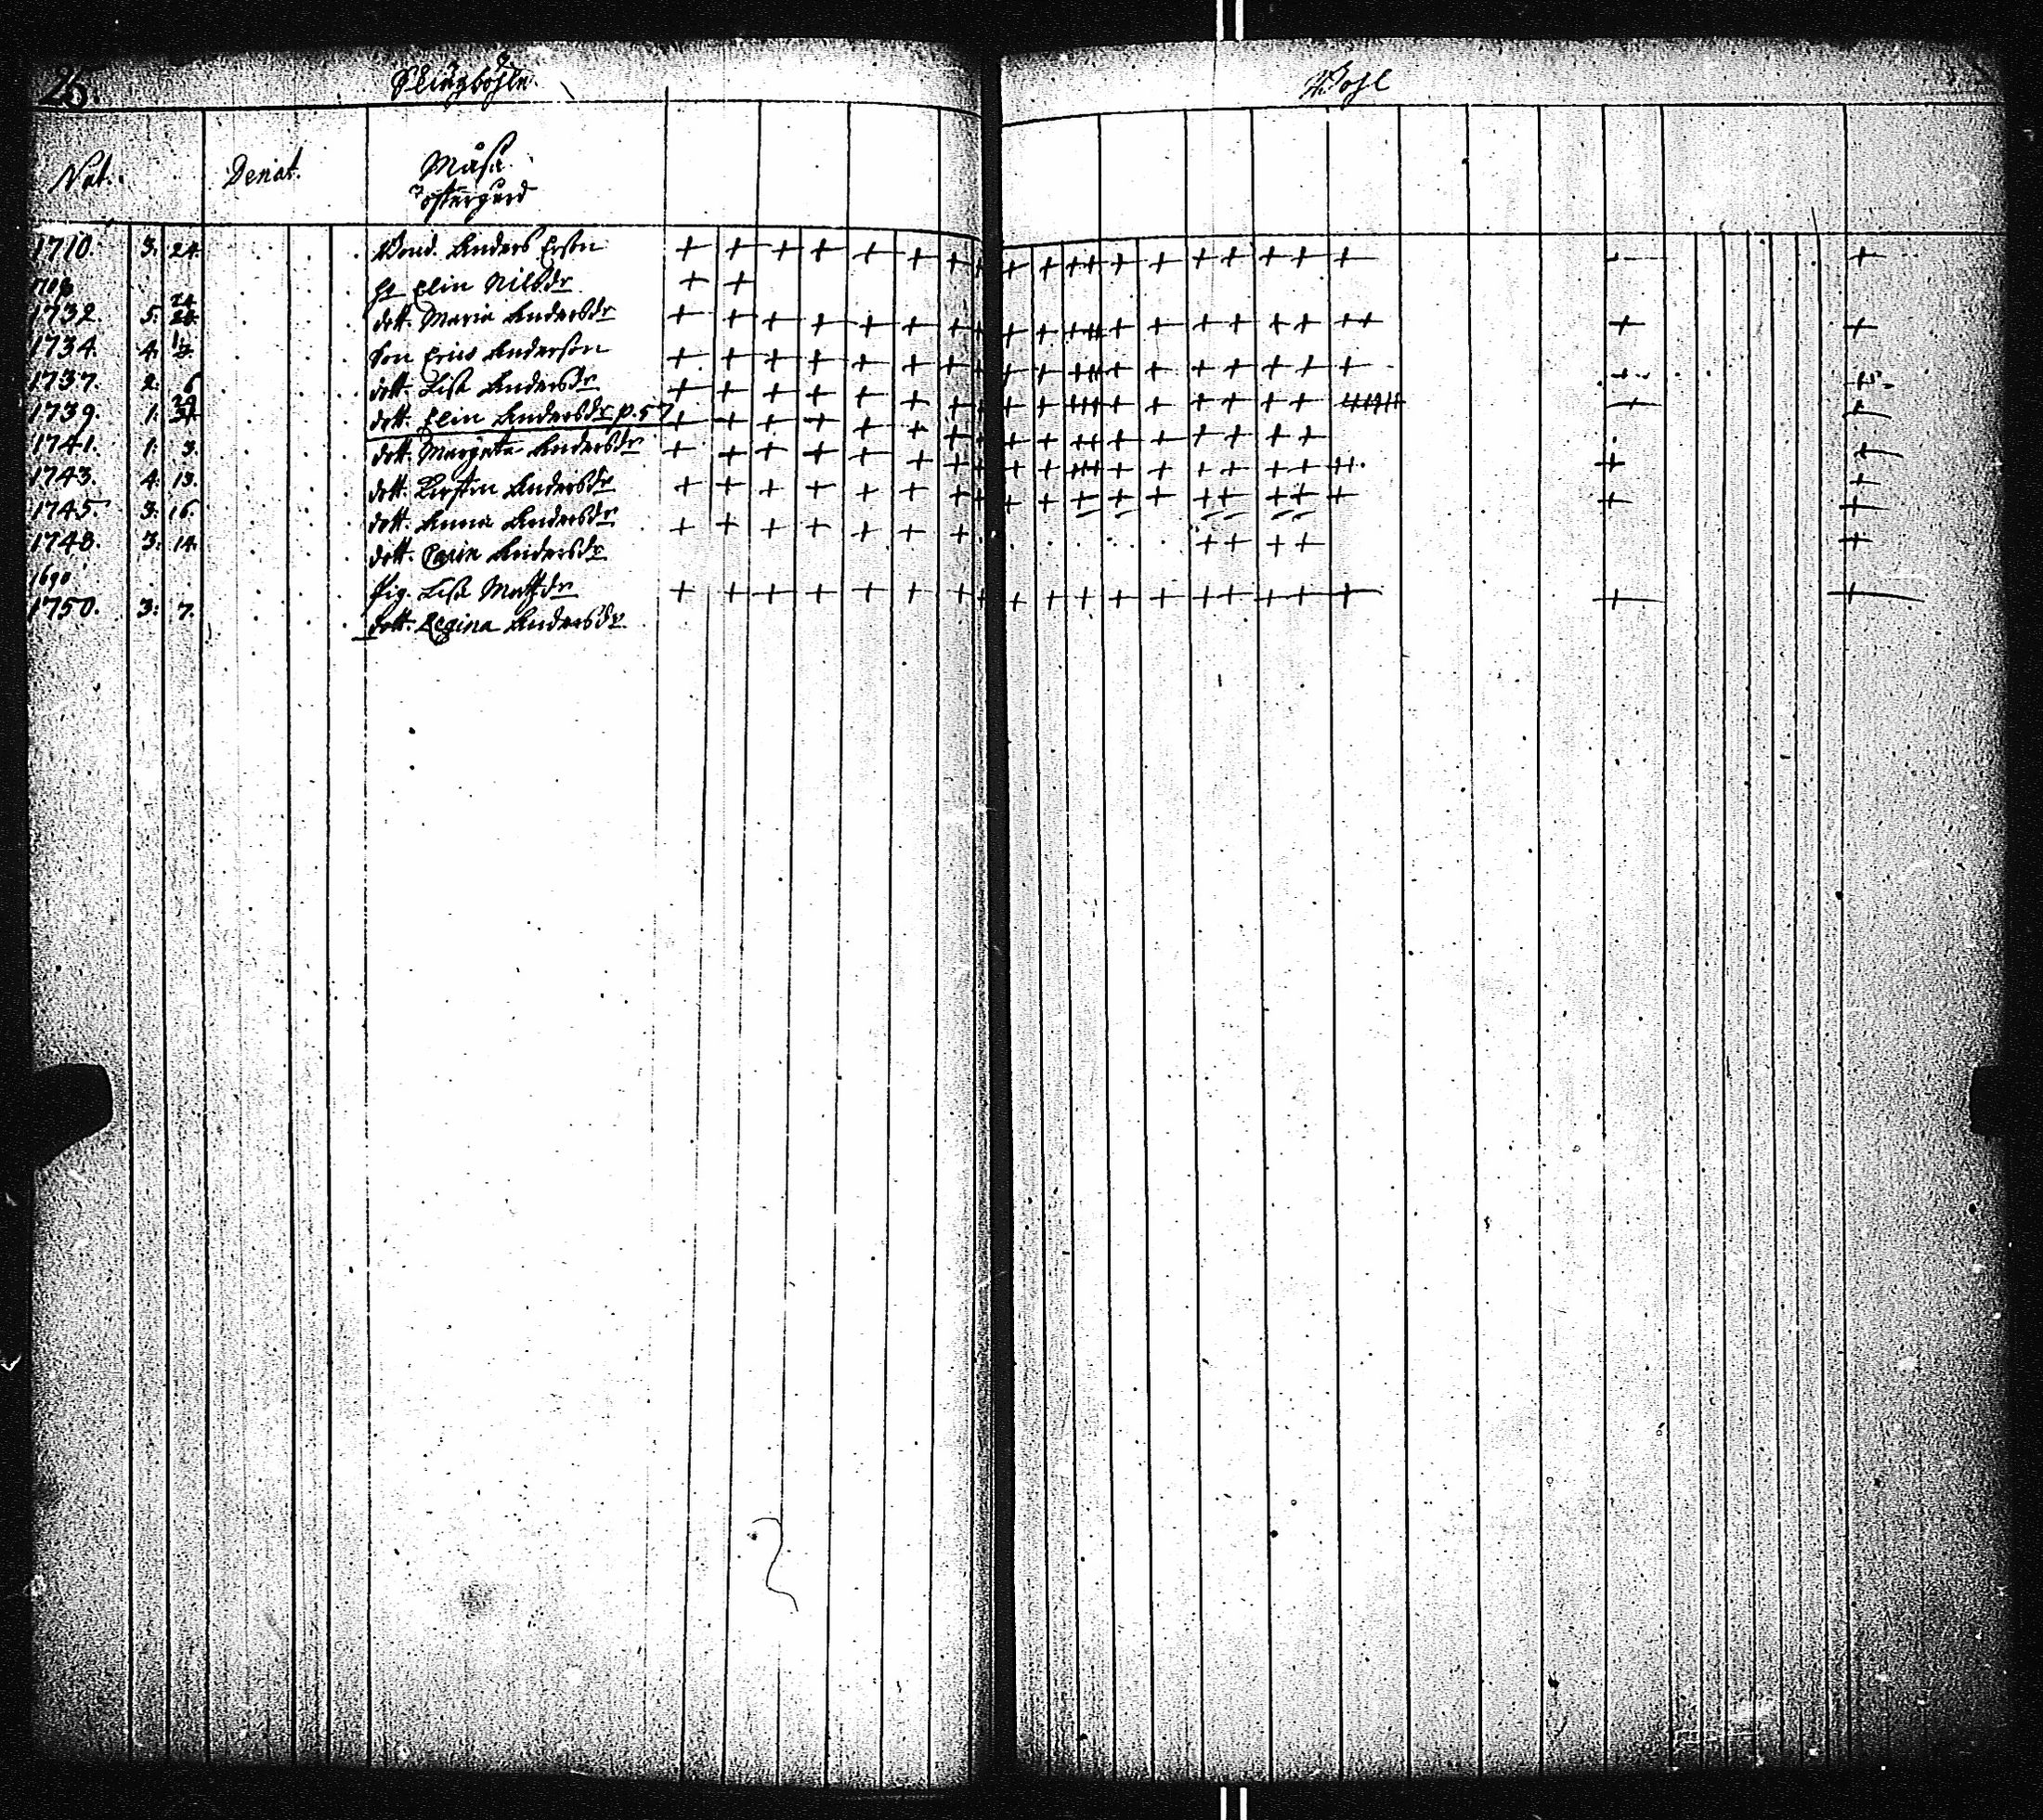 26.
Wohl
Nat. Denat. Måsa
östergård
1710. 3. 24. Bond. Anders Ersson
1708 hu Elin Nilsdr
1732. 5. 24 dott. Maria Andersdr
1734. 4. Son Eric Andersson
1737. 2. 6 dott. Lisa Andersdr
1739. 1. 29 dott. Elin Andersdr p. 57
1741. 1. 3. dott. Margeta Andersdr
1743. 4. 13. dott. Kirstin Andersdr
1745. 3. 16. dott. Anna Andersdr
1748. 3. 14. dott. Carin Andersdr
1690 Pig. Lisa Mattsdr
1750. 3. 7. dott. Regina Andersdr